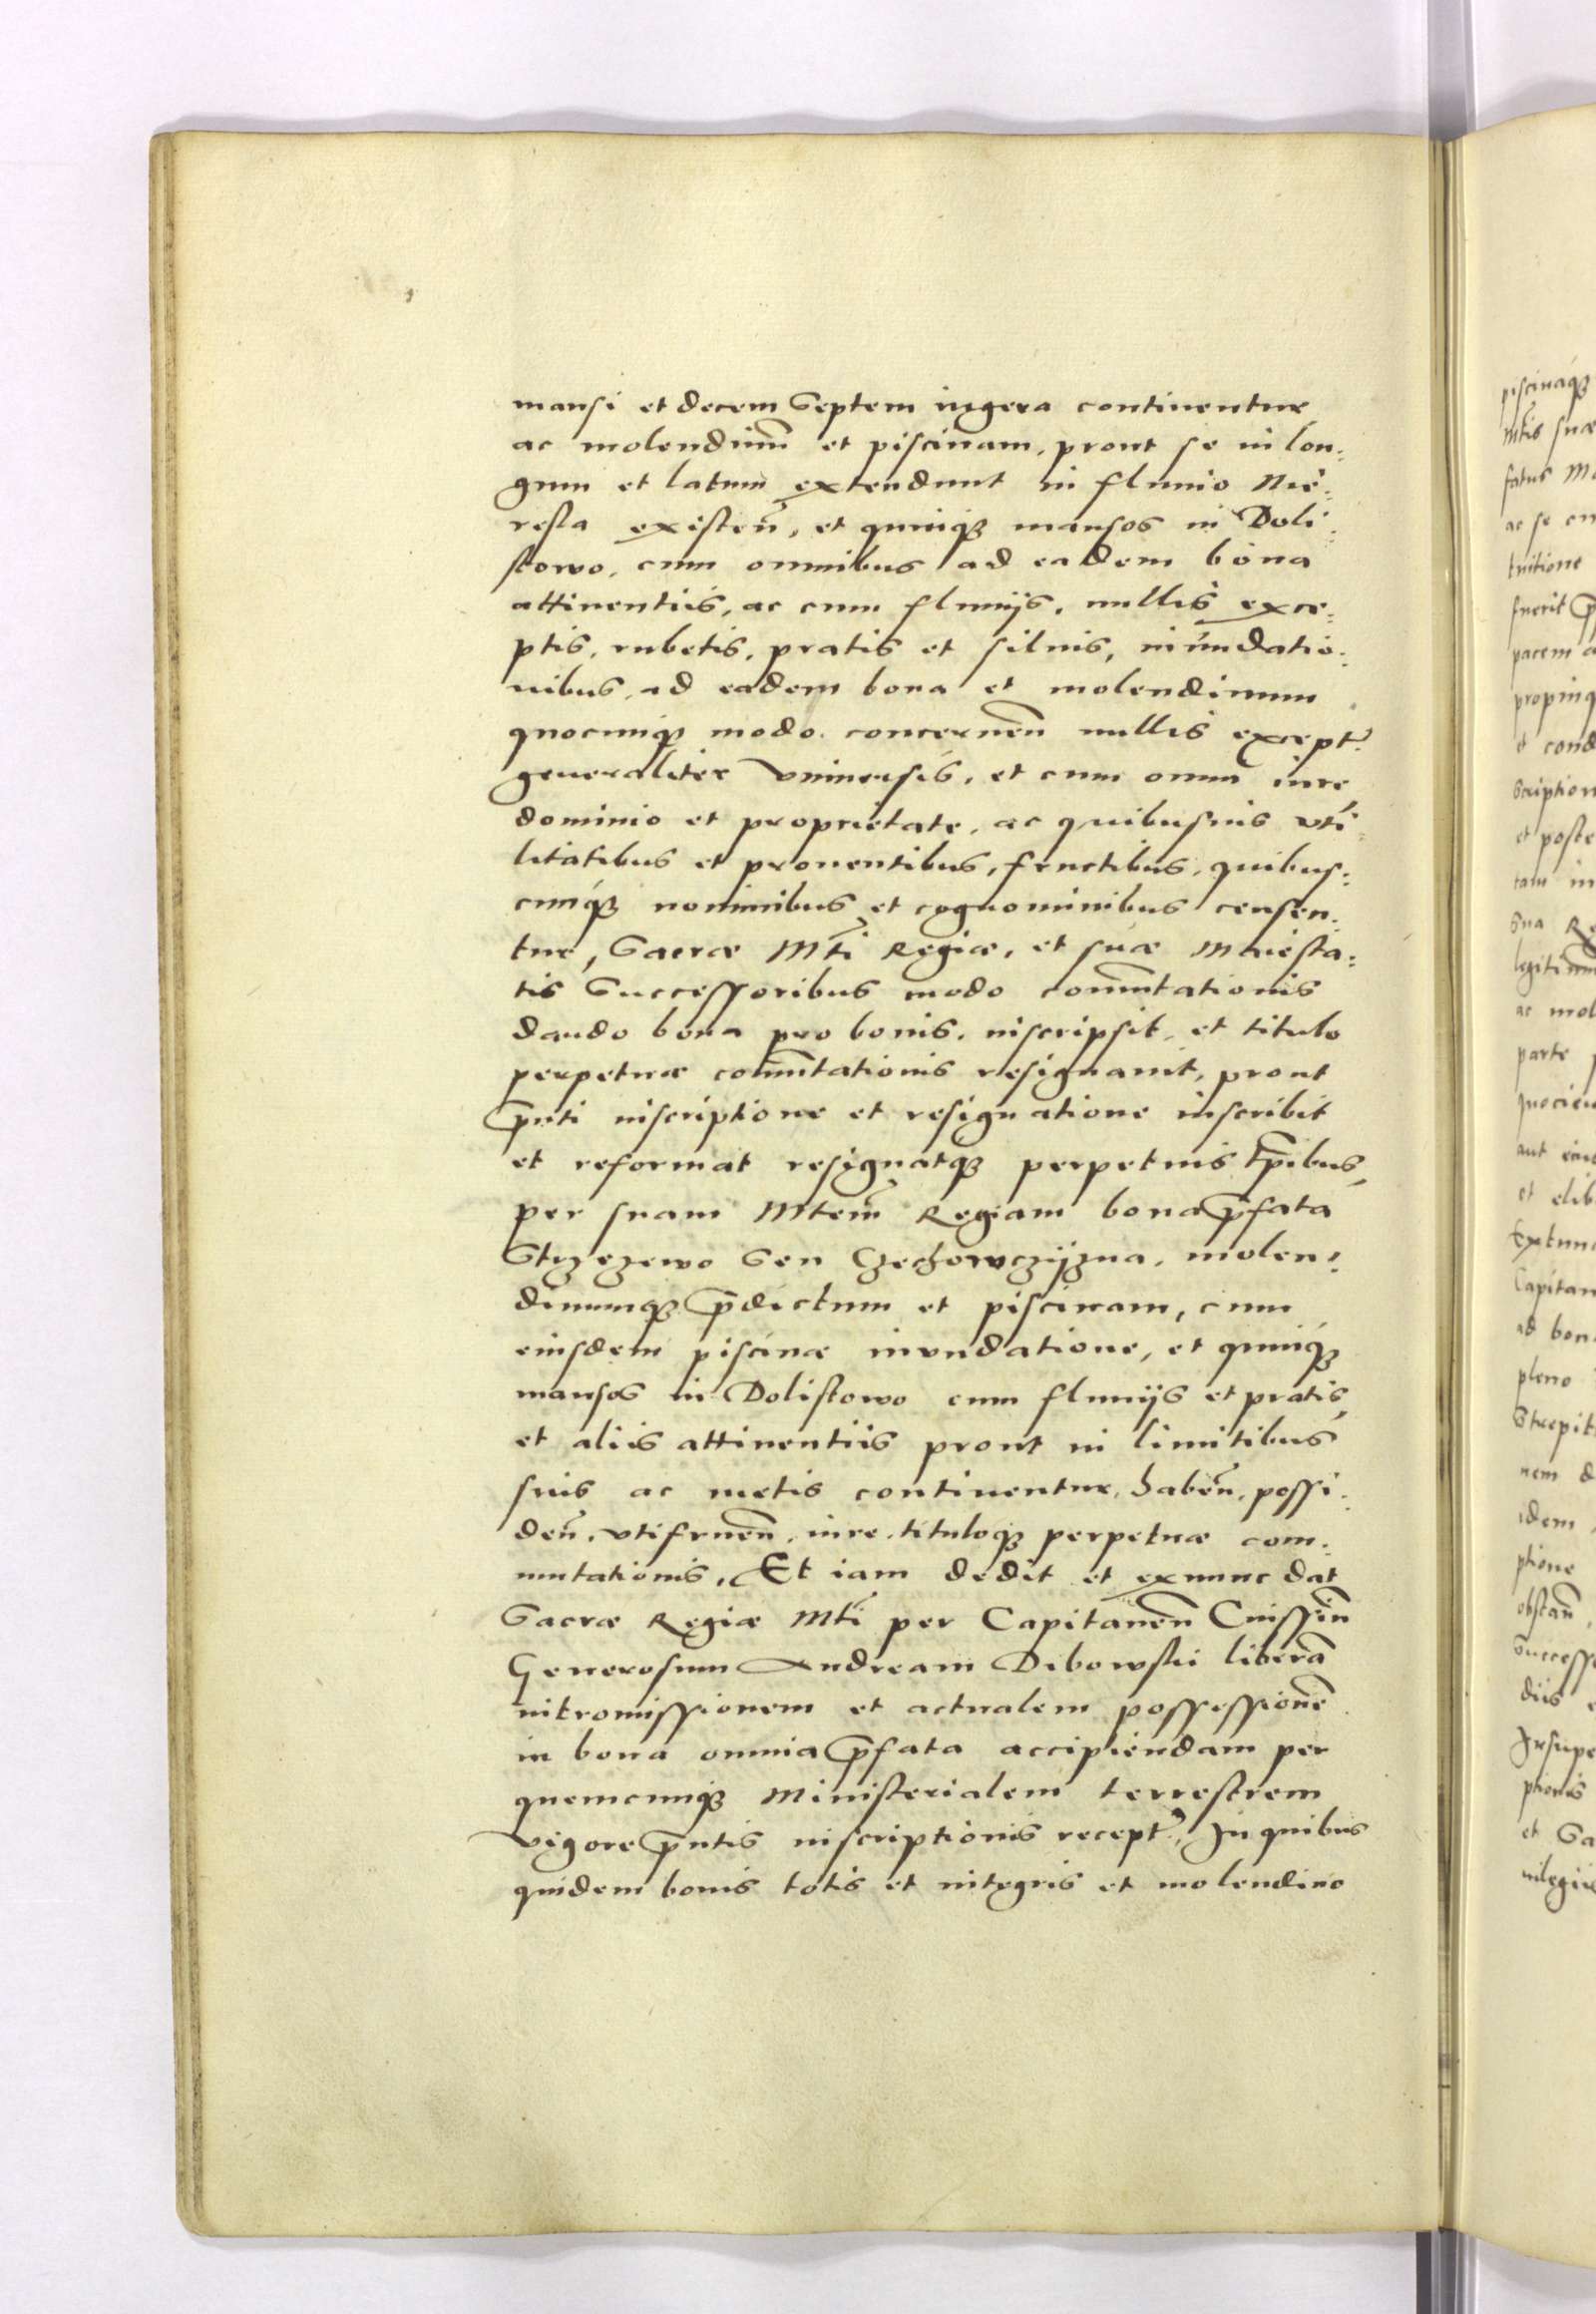 mansi et decem Septem iugera continentur
ac molendinū et piscinam, prout se in lon:
gum et latum extendunt in fluuio Nie:
resla existeñ, et quinqȝ mansos in Doli:
stowo, cum omnibus ad eadem bona
attinentiis, ac cum fluuijs, nullis exce:
ptis, rubetis, pratis et siluis, inundatio:
nibus, ad eadem bona et molendinum
quocunqȝ modo concerneñ nullis except̃
generaliter vniuersis, et cum omni iure
dominio et proprietate, ac quibusuis vti:
litatibus et prouentibus, fructibus, quibus:
cunqȝ nominibus et cognominibus censen:
tur, Sacræ Mt̃i Regiæ, et suæ Maiesta:
tis Successoribus modo com̃utationis
dando bona pro bonis, inscripsit, et titulo
perpetuæ com̃utationis resignauit, prout
p̃nti inscriptione et resignatione inscribit
et reformat resignatqȝ perpetuis tp̃ibus,
per suam Mtem̃ Regiam bona p̃fata
Strzezewo Seu Czechowczijzna, molen:
dinumqȝ p̃dictum et piscinam, cum
eiusdem piscinæ inundatione, et quinqȝ
mansos in Dolistowo cum fluuijs et pratis,
et aliis attinentiis prout in limitibus
suis ac metis continentur, habeñ, possi:
deñ, vtifrueñ, iure, tituloqȝ perpetuæ com:
mutationis, Et iam dedit et exnunc dat
Sacræ Regiæ Mt̃i per Capitaneũ Cnissiñ
Generosum Andream Dibowski liberã
intromissionem et actualem possessionẽ
in bona omnia p̃fata accipiendam per
quemcunqȝ Ministerialem terrestrem
vigore p̃ntis inscriptionis recept̃, In quibus
quidem bonis totis et integris et molendino
piscinaqȝ
ac se
tuitione
fuerit
pacem
et cond
et poste
tam in
sua
ac mol
parte
et elib
Extunc
Capitan
ad bon
pleno
nem
idem
ptione
Successo
diis
Insupe
ptionis
et Sa